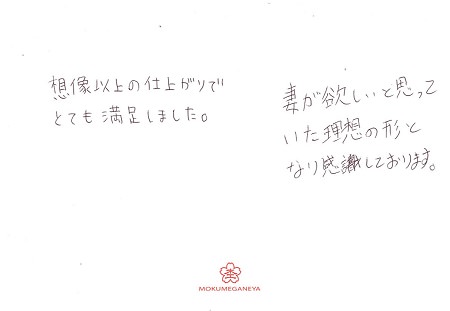 想像以上の仕上がりで
とても満足しました。
妻が欲しいと思って
いた理想の形と
なり感謝しております。
MOKUMEGANEYA